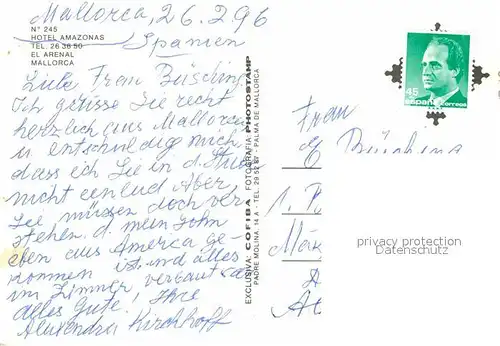 Mallorca, 26.2.96
Spanien
N° 245
HOTEL AMAZONAS
TEL. 26 36 50
EL ARENAL
MALLORCA
Liebe Frau Büsching
Ich grüsse Sie recht
herzlich aus Mallorca
u entschuldig mich
dass ich Sie in d.
nicht einlud Aber
Sie müssen doch ver
stehen d. mein Sohn
eben aus America ge-
kommen ist und alles
im Zimmer verbaut
alles Gute! Ihre
Alexandra Kirchhoff
EXCLUSIVA: COFIBA FOTOGRAFIA PHOTOSTAMP
PADRE MOLINA, 14 A - TEL. 29 52 67 - PALMA DE MALLORCA
45
España correos
Frau
E
1. P
privacy protection
Datenschutz